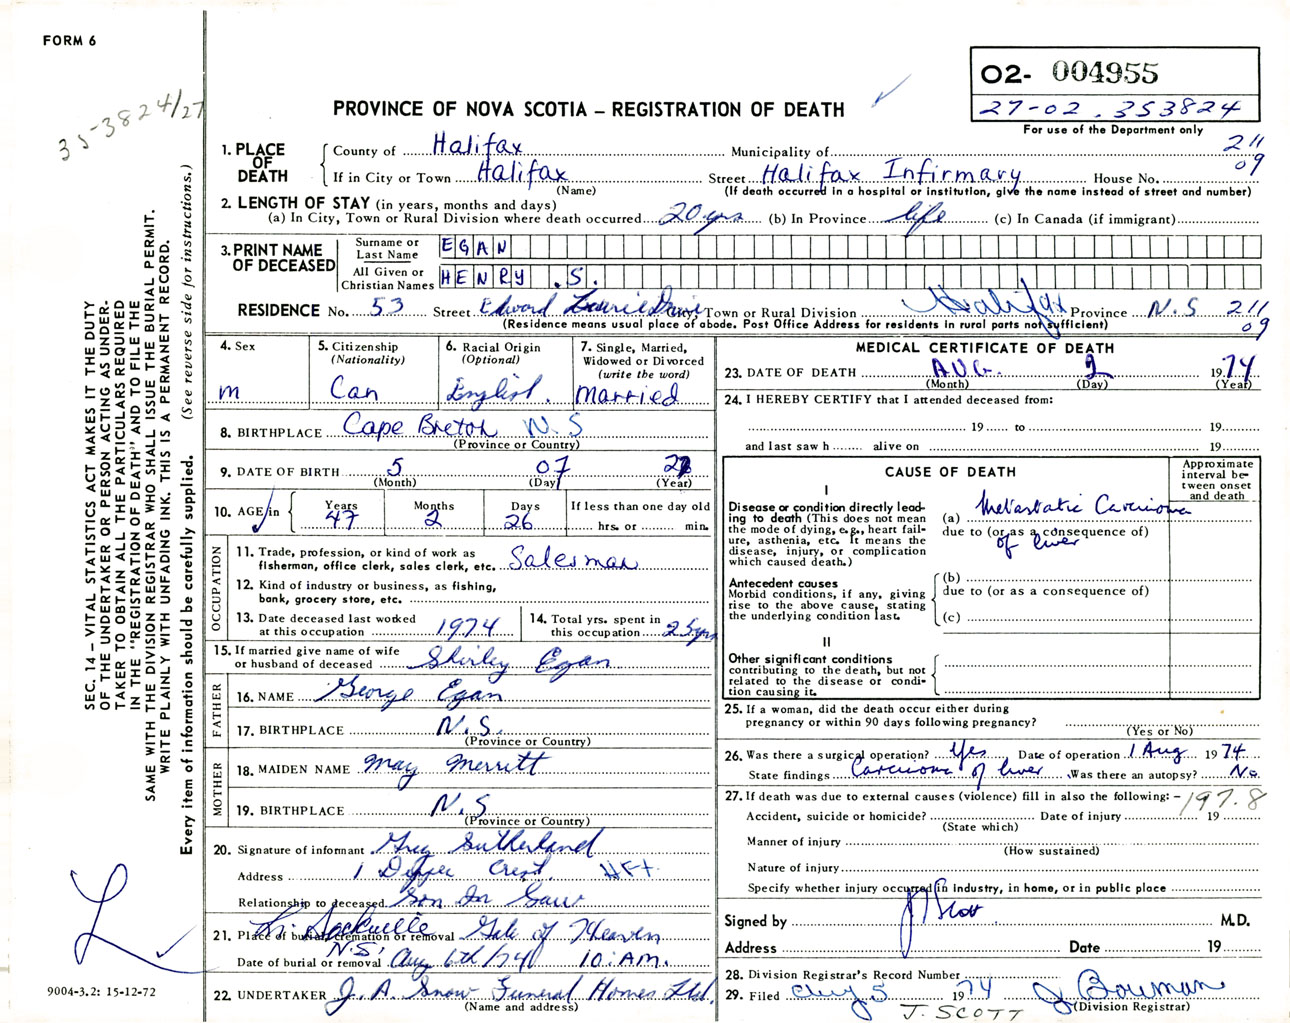 FORM 6
35-3824/27
O2- 004955
27-02.353824
For use of the Department only
PROVINCE OF NOVA SCOTIA – REGISTRATION OF DEATH
211
09
1. PLACE OF DEATH
County of Halifax Municipality of
If in City or Town Halifax Street Halifax Infirmary House No.
(Name) (If death occurred in a hospital or institution, give the name instead of street and number)
2. LENGTH OF STAY (in years, months and days)
(a) In City, Town or Rural Division where death occurred 20 yrs (b) In Province life (c) In Canada (if immigrant)
3. PRINT NAME OF DECEASED
Surname or Last Name EGAN
All Given or Christian Names HENRY .S.
RESIDENCE No. 53 Street Edward Laurie Drive, Town or Rural Division Halifax Province N.S 211
09
(Residence means usual place of abode. Post Office Address for residents in rural parts not sufficient)
4. Sex
m
5. Citizenship
(Nationality)
Can
6. Racial Origin
(Optional)
English.
7. Single, Married,
Widowed or Divorced
(write the word)
married
8. BIRTHPLACE Cape Breton N.S
(Province or Country)
9. DATE OF BIRTH 5 07
(Month) (Day) (Year)
10. AGE in Years 47 Months 2 Days 26
If less than one day old
hrs. or min.
OCCUPATION
11. Trade, profession, or kind of work as
fisherman, office clerk, sales clerk, etc. Salesman
12. Kind of industry or business, as fishing,
bank, grocery store, etc.
13. Date deceased last worked
at this occupation 1974
14. Total yrs. spent in
this occupation 25 yrs
15. If married give name of wife
or husband of deceased Shirley Egan
FATHER
16. NAME George Egan
17. BIRTHPLACE N.S.
(Province or Country)
MOTHER
18. MAIDEN NAME May Merritt
19. BIRTHPLACE N.S
(Province or Country)
20. Signature of informant Greg Sutherland
Address 1 Dipper Crest. HFX
Relationship to deceased Son In Law
21. Place of burial, cremation or removal Lr. Sackville N.S. Gate of Heaven
Date of burial or removal Aug 6th/74 10:AM.
22. UNDERTAKER J. A. Snow Funeral Homes Ltd.
(Name and address)
MEDICAL CERTIFICATE OF DEATH
23. DATE OF DEATH AUG. 2 1974
(Month) (Day) (Year)
24. I HEREBY CERTIFY that I attended deceased from:
19 to 19
and last saw h alive on 19
CAUSE OF DEATH
Approximate
interval be-
tween onset
and death
I
Disease or condition directly lead-
ing to death (This does not mean
the mode of dying, e.g., heart fail-
ure, asthenia, etc. It means the
disease, injury, or complication
which caused death.)
(a) Metastatic Carcinoma
due to (or as a consequence of)
of liver
Antecedent causes
Morbid conditions, if any, giving
rise to the above cause, stating
the underlying condition last.
(b)
due to (or as a consequence of)
(c)
II
Other significant conditions
contributing to the death, but not
related to the disease or condi-
tion causing it.
25. If a woman, did the death occur either during
pregnancy or within 90 days following pregnancy?
(Yes or No)
26. Was there a surgical operation? Yes Date of operation 1 Aug 1974
State findings Carcinoma of liver Was there an autopsy? No
27. If death was due to external causes (violence) fill in also the following: – 197.8
Accident, suicide or homicide? Date of injury 19
(State which)
Manner of injury
(How sustained)
Nature of injury
Specify whether injury occurred in industry, in home, or in public place
Signed by J Scott M.D.
Address Date 19
28. Division Registrar's Record Number
29. Filed Aug 5 1974 J Bowman
(Division Registrar)
J. SCOTT
SEC. 14 – VITAL STATISTICS ACT MAKES IT THE DUTY
OF THE UNDERTAKER OR PERSON ACTING AS UNDER-
TAKER TO OBTAIN ALL THE PARTICULARS REQUIRED
IN THE "REGISTRATION OF DEATH" AND TO FILE THE
SAME WITH THE DIVISION REGISTRAR WHO SHALL ISSUE THE BURIAL PERMIT.
WRITE PLAINLY WITH UNFADING INK. THIS IS A PERMANENT RECORD.
Every item of information should be carefully supplied. (See reverse side for instructions.)
9004-3.2: 15-12-72